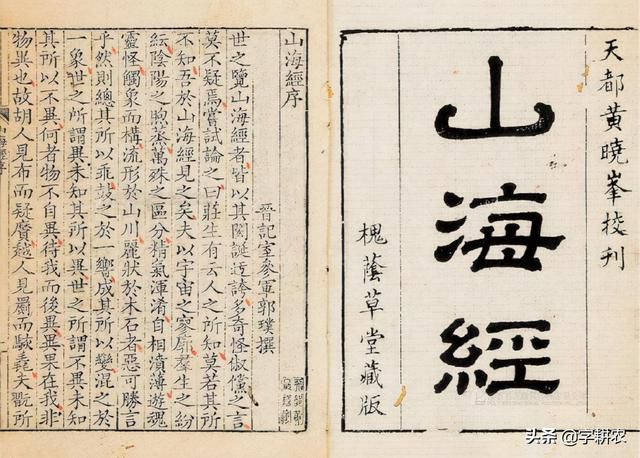 天都黃曉峯校刊
山海經
槐蔭草堂藏版
山海經序
晉記室參軍郭璞撰
世之覽山海經者皆以其閎誕迂誇多奇怪俶儻之言
莫不疑焉嘗試論之曰莊生有云人之所知莫若其所
不知吾於山海經見之矣夫以宇宙之寥廓羣生之紛
紜陰陽之煦蒸萬殊之區分精氣渾淆自相濆薄遊魂
靈怪觸象而構流形於山川麗狀於木石者惡可勝言
乎然則總其所以乖鼓之於一響成其所以變混之於
一象世之所謂異未知其所以異世之所謂不異未知
其所以不異何者物不自異待我而後異異果在我非
物異也故胡人見布而疑黂越人見罽而駭毳夫翫所
山海經序
头条 @字耕农